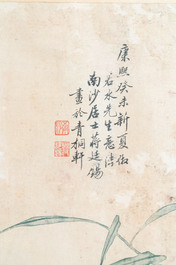 康熙癸未新夏倣
若水先生意清
南沙居士蔣廷錫
畫於青桐軒